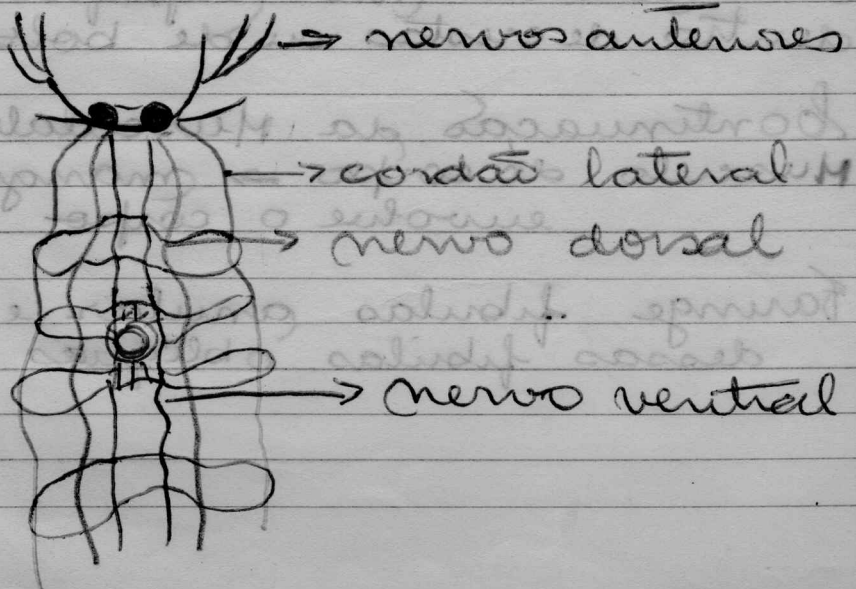 nervos anteriores
cordão lateral
nervo dorsal
nervo ventral